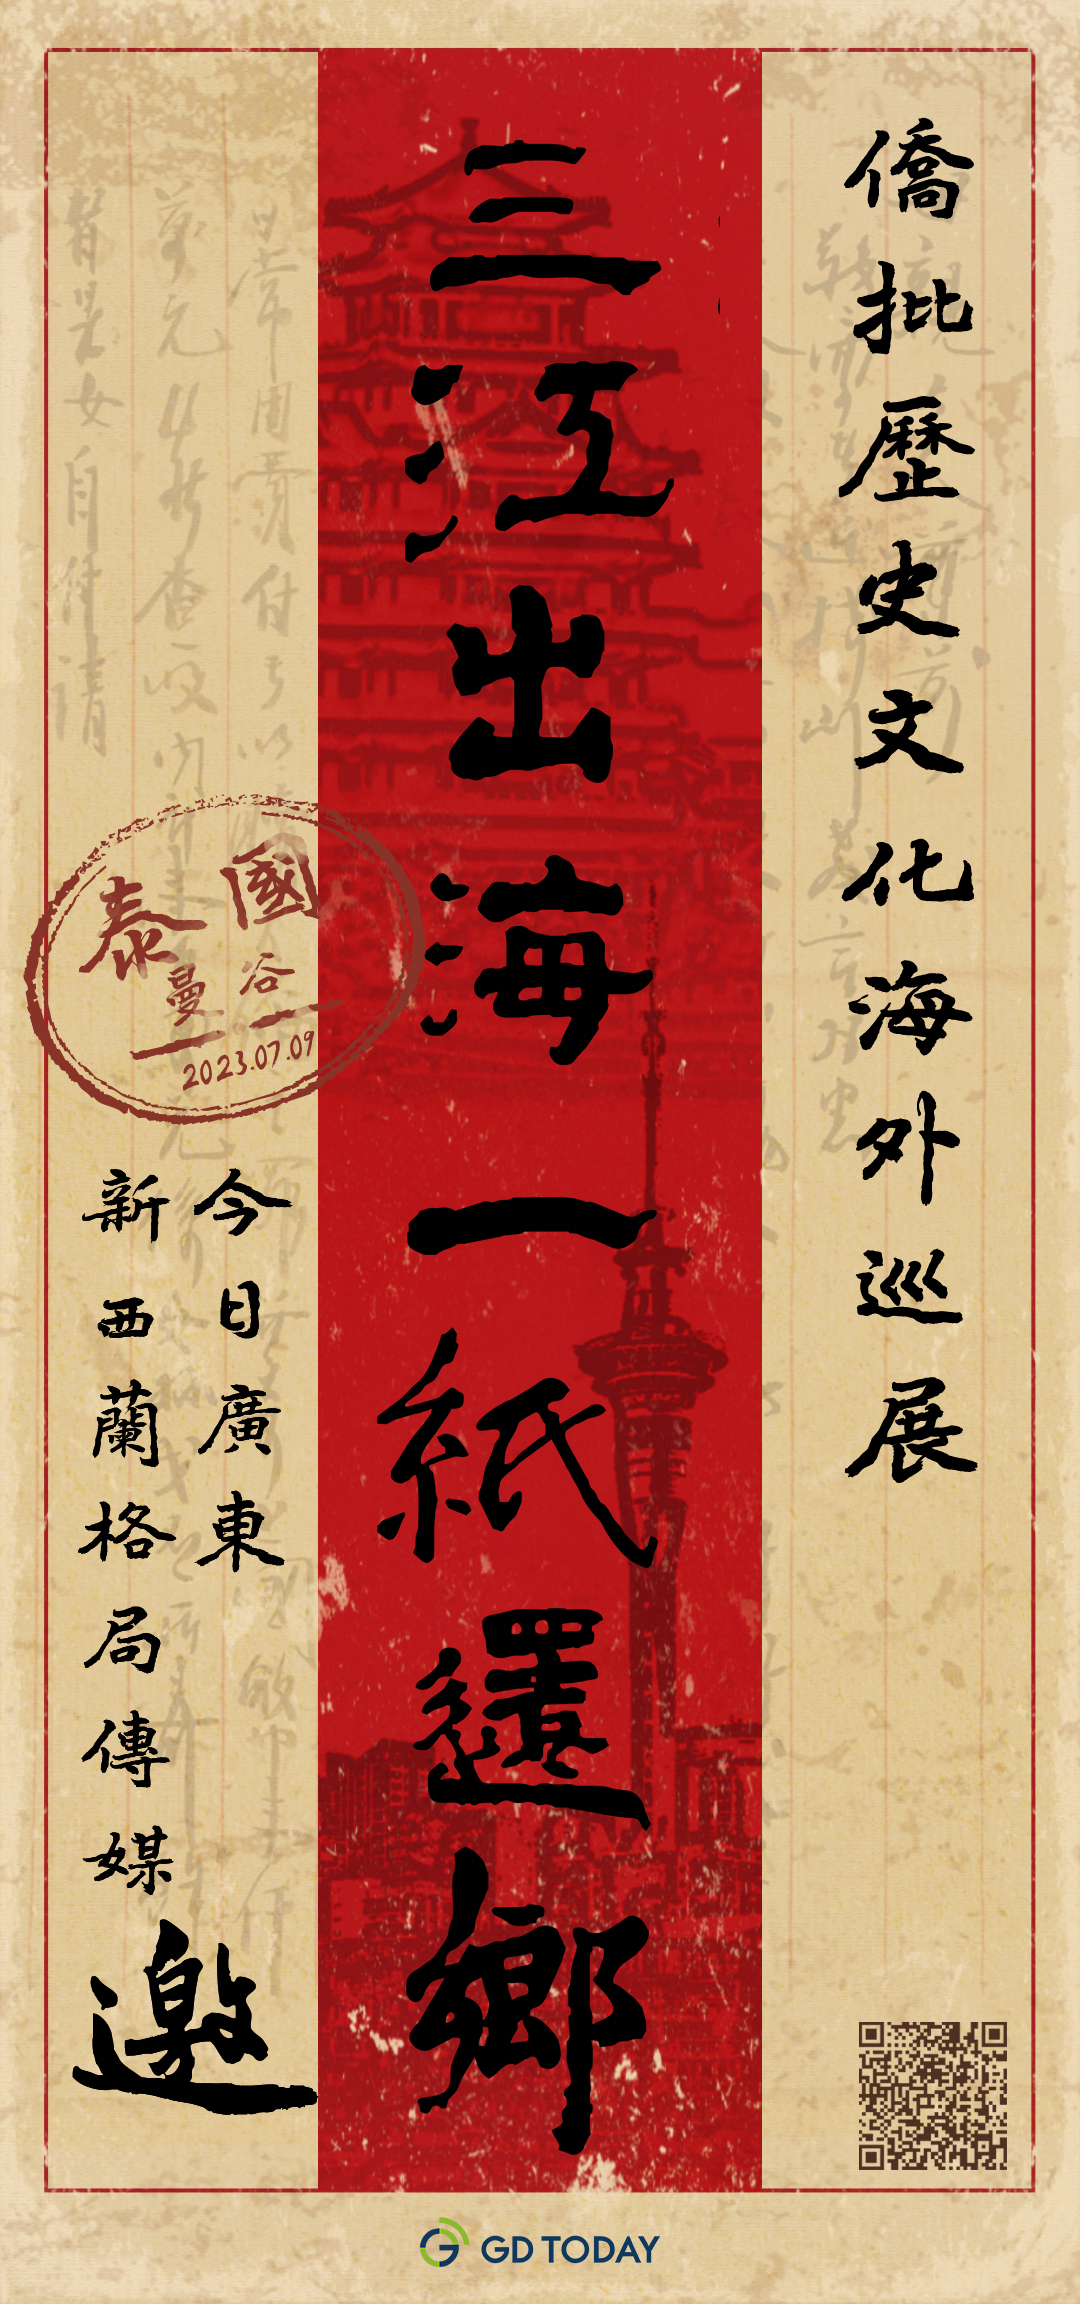 僑批歷史文化海外巡展
三江出海
一紙還鄉
泰國
曼谷
2023.07.09
今日廣東
新西蘭格局傳媒
邀
GD TODAY